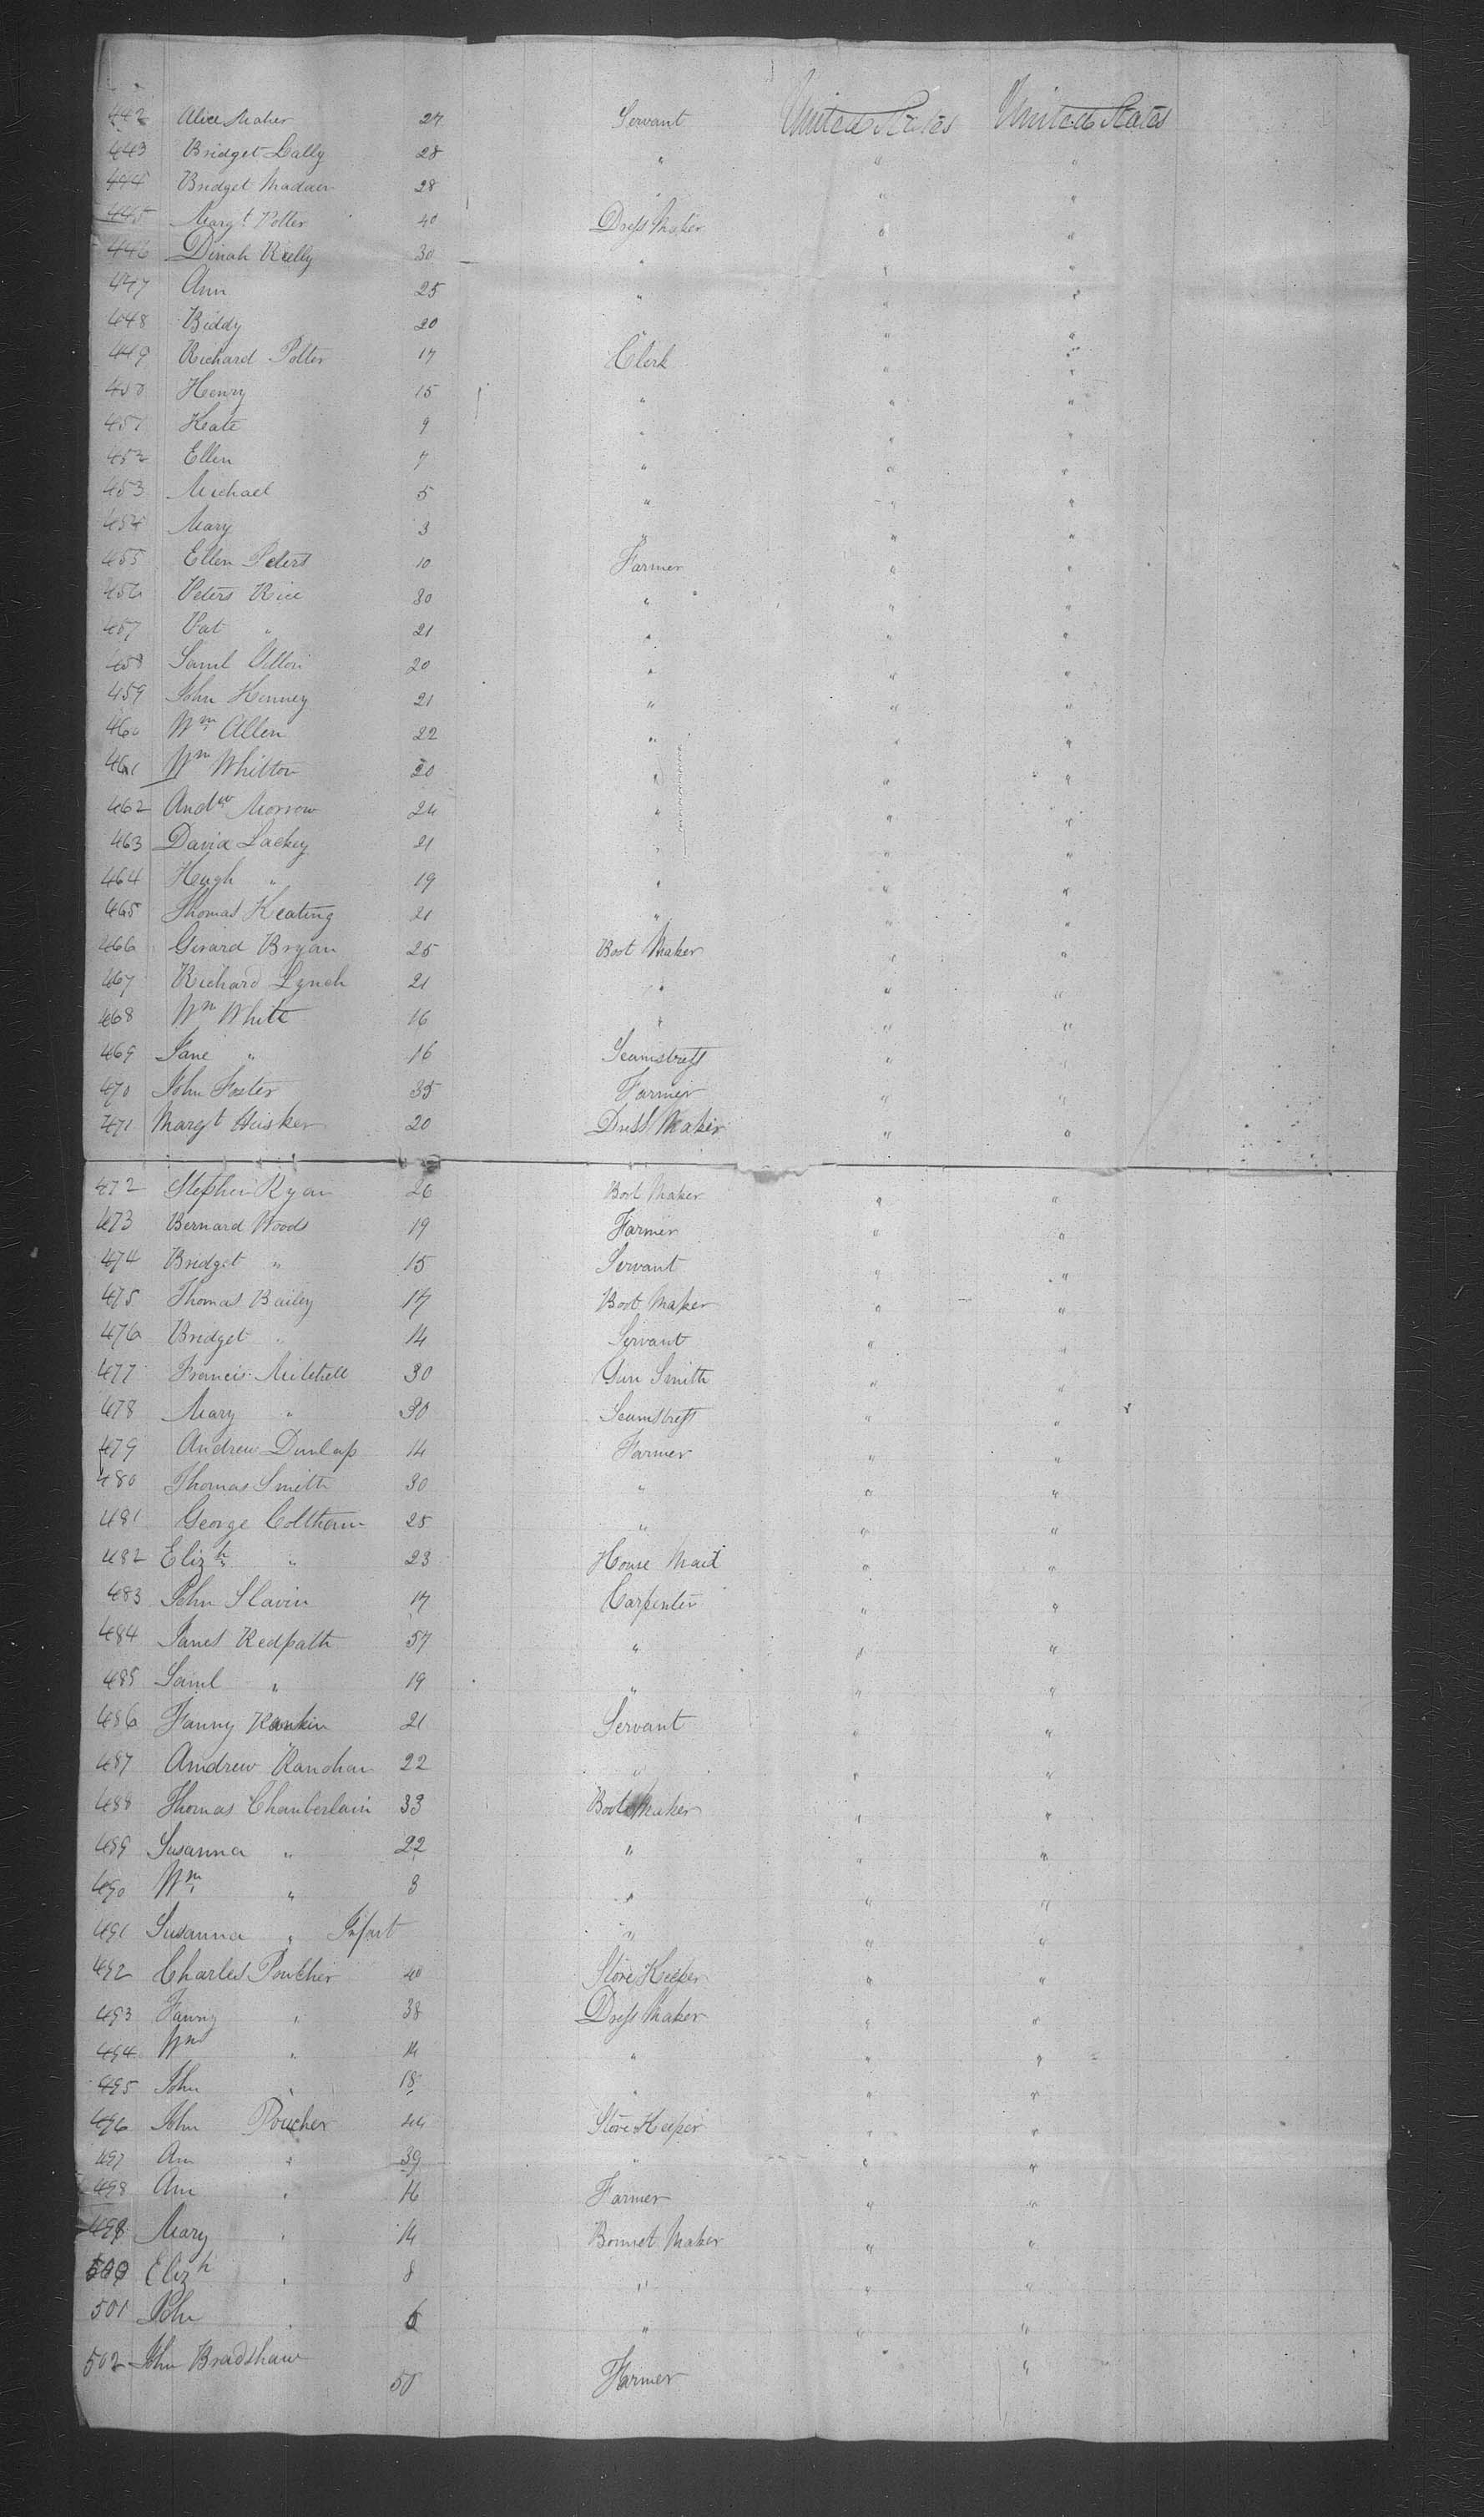 442 Alice Maher 24 Servant United States United States
443 Bridget Lally 28 " " "
444 Bridget Madden 28 " " "
445 Margt Potter 40 Dress Maker " "
446 Dinah Rielly 30 " " "
447 Ann 25 " " "
448 Biddy 20 " " "
449 Richard Potter 17 Clerk " "
450 Henry 15 " " "
451 Keate 9 " " "
452 Ellen 7 " " "
453 Michael 5 " " "
454 Mary 3 " " "
455 Ellen Peters 10 Farmer " "
456 Peters Rice 30 " " "
457 Pat " 21 " " "
458 Saml 20 " " "
459 John Kenney 21 " " "
460 Wm Allen 22 " " "
461 Wm Whitton 20 " " "
462 Andw Morrow 24 " " "
463 David Lackey 21 " " "
464 Hugh " 19 " " "
465 Thomas Keating 21 " " "
466 Gerard Bryan 25 Boot Maker " "
467 Richard Lynch 21 " " "
468 Wm White 16 " " "
469 Jane " 16 Seamstress " "
470 John Foster 35 Farmer " "
471 Margt Heisker 20 Dress Maker " "
472 Stephen Ryan 26 Boot Maker " "
473 Bernard Woods 19 Farmer " "
474 Bridget " 15 Servant " "
475 Thomas Bailey 17 Boot Maker " "
476 Bridget " 14 Servant " "
477 Francis Mitchell 30 Gun Smith " "
478 Mary " 30 Seamstress " "
479 Andrew Dunlap 14 Farmer " "
480 Thomas Smith 30 " " "
481 George Coltham 25 " " "
482 Elizh " 23 House Maid " "
483 John Slavin 17 Carpenter " "
484 Janes Redpath 57 " " "
485 Saml " 19 " " "
486 Fanny Rankin 21 Servant " "
487 Andrew Kanohan 22 " " "
488 Thomas Chamberlain 33 Boot Maker " "
489 Susanna " 22 " " "
490 Wm " 3 " " "
491 Susanna " Infant " " "
492 Charles Poucher 40 Store Keeper " "
493 Fanny " 38 Dress Maker " "
494 Wm " 14 " " "
495 John " 18 " " "
496 John Poucher 44 Store Keeper " "
497 Ann " 39 " " "
498 Ann " 16 Farmer " "
499 Mary " 14 Bonnet Maker " "
500 Elizh " 8 " " "
501 John " 6 " " "
502 John Bradshaw 50 Farmer " "